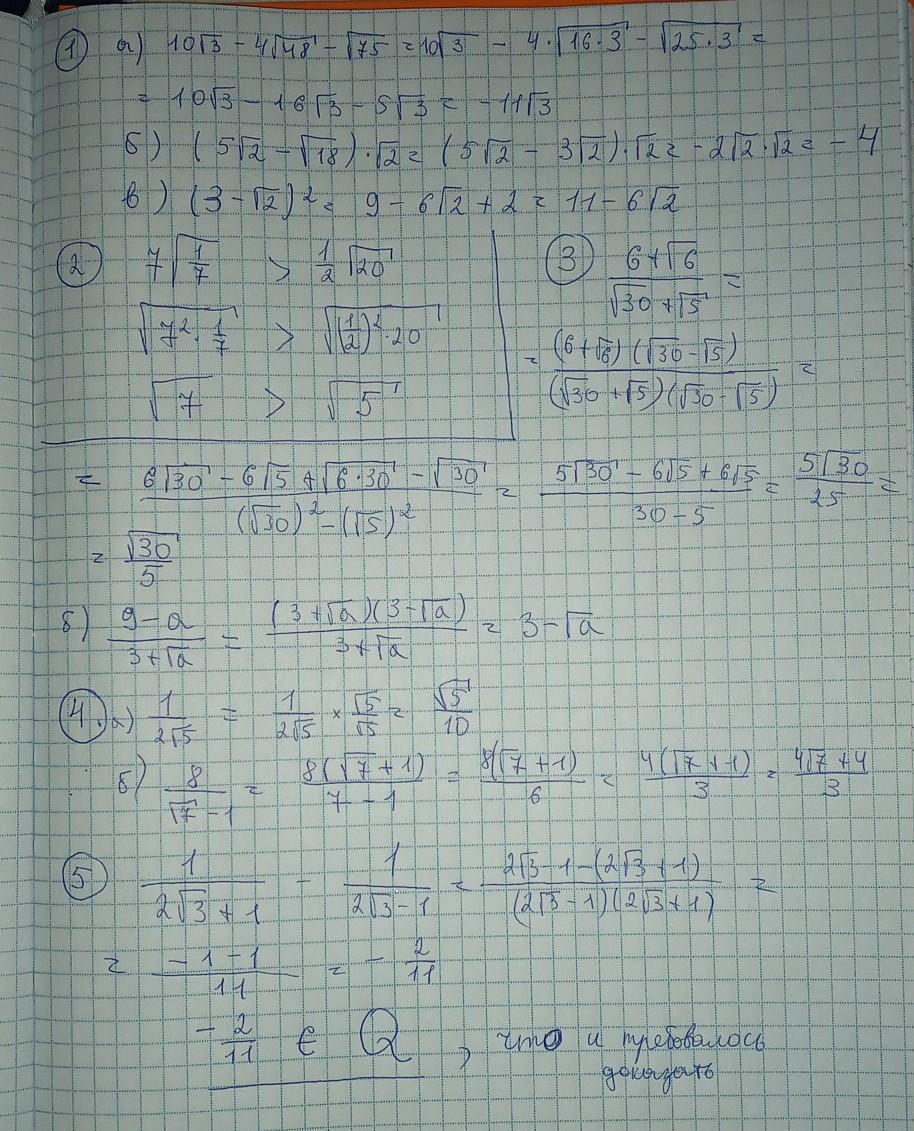 ① а) 10√3 - 4√48 - √75 = 10√3 - 4·√(16·3) - √(25·3) =
= 10√3 - 16√3 - 5√3 = -11√3
б) (5√2 - √18)·√2 = (5√2 - 3√2)·√2 = -2√2·√2 = -4
в) (3-√2)² = 9 - 6√2 + 2 = 11 - 6√2
② 7√(1/7) > 1/2 √20
√(7²·1/7) > √((1/2)²·20)
√7 > √5
③ (6+√6)/(√30+√5) =
= ((6+√6)(√30-√5))/((√30+√5)(√30-√5)) =
= (6√30 - 6√5 + √(6·30) - √30)/((√30)² - (√5)²) = (5√30 - 6√5 + 6√5)/(30-5) = 5√30/25 =
= √30/5
б) (9-a)/(3+√a) = ((3+√a)(3-√a))/(3+√a) = 3-√a
④. а) 1/(2√5) = 1/(2√5) × √5/√5 = √5/10
б) 8/(√7-1) = 8(√7+1)/(7-1) = 8(√7+1)/6 = 4(√7+1)/3 = (4√7+4)/3
⑤ 1/(2√3+1) - 1/(2√3-1) = (2√3-1-(2√3+1))/((2√3-1)(2√3+1)) =
= (-1-1)/11 = - 2/11
- 2/11 ∈ Q, что и требовалось
доказать